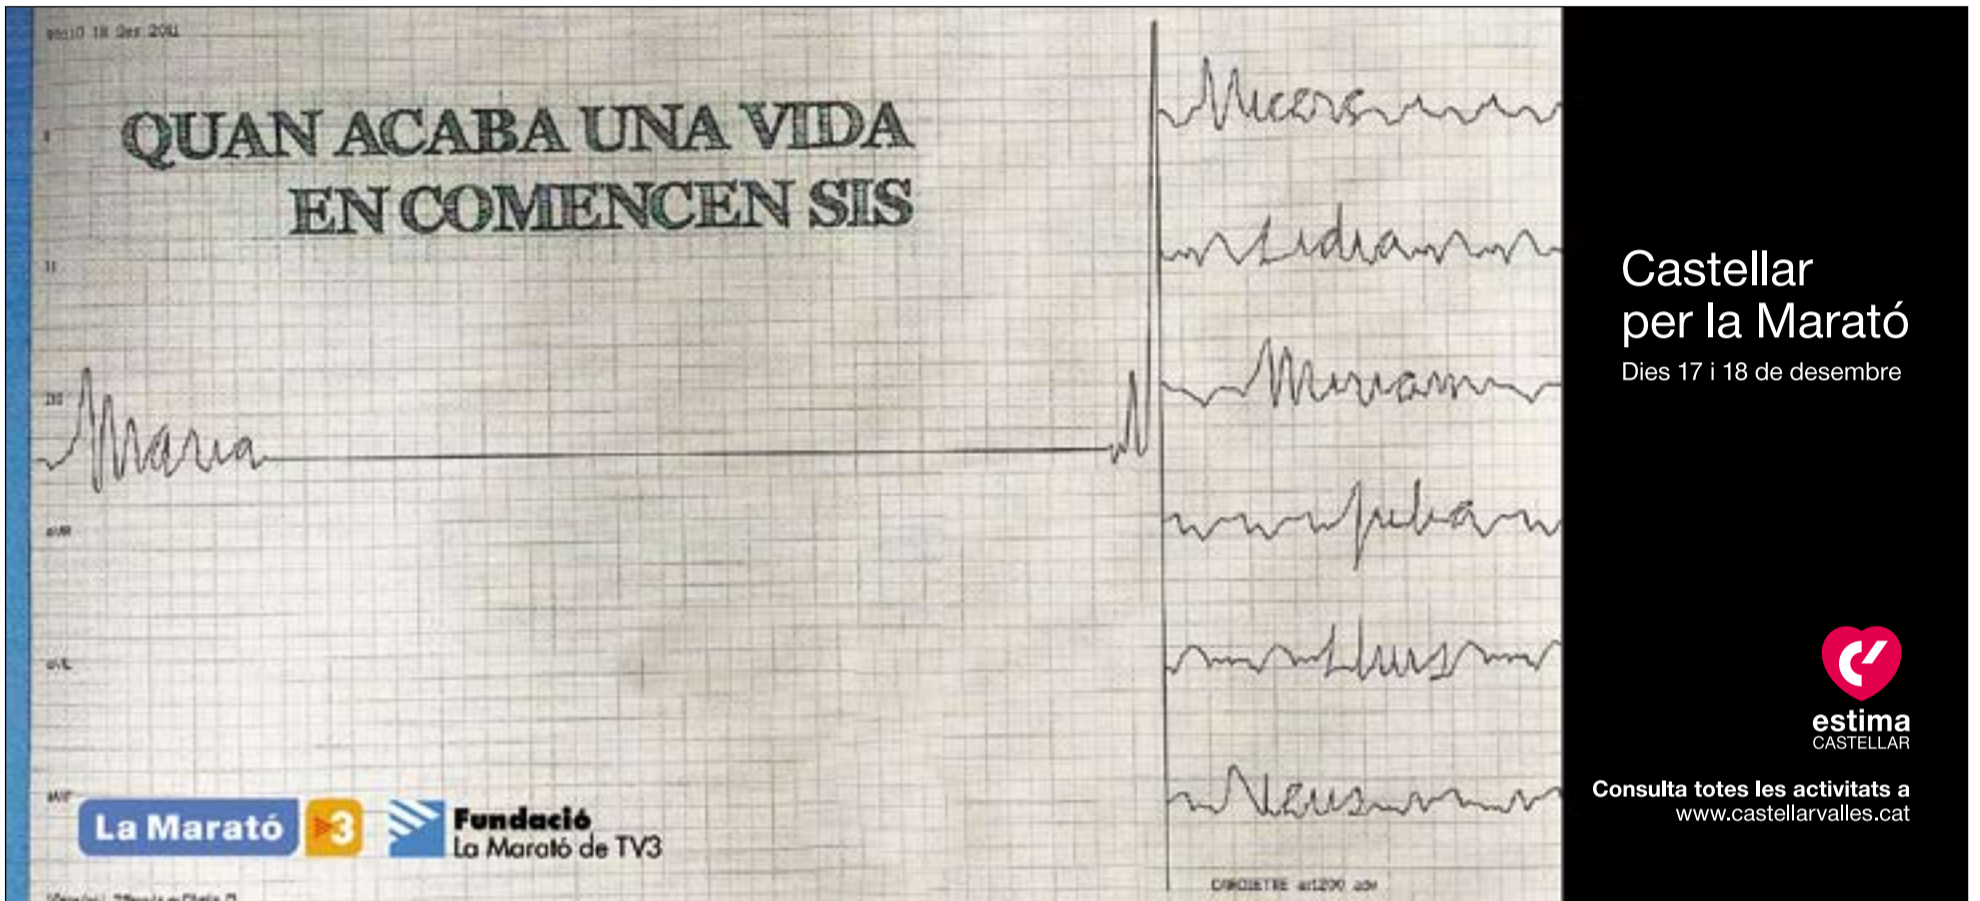 18 Des 2011
QUAN ACABA UNA VIDA
EN COMENCEN SIS
II
III
aVR
aVL
aVF
Maria
Lidia
Miriam
Julia
Lluis
Neus
La Marató 3
Fundació
La Marató de TV3
Castellar
per la Marató
Dies 17 i 18 de desembre
estima
CASTELLAR
Consulta totes les activitats a
www.castellarvalles.cat